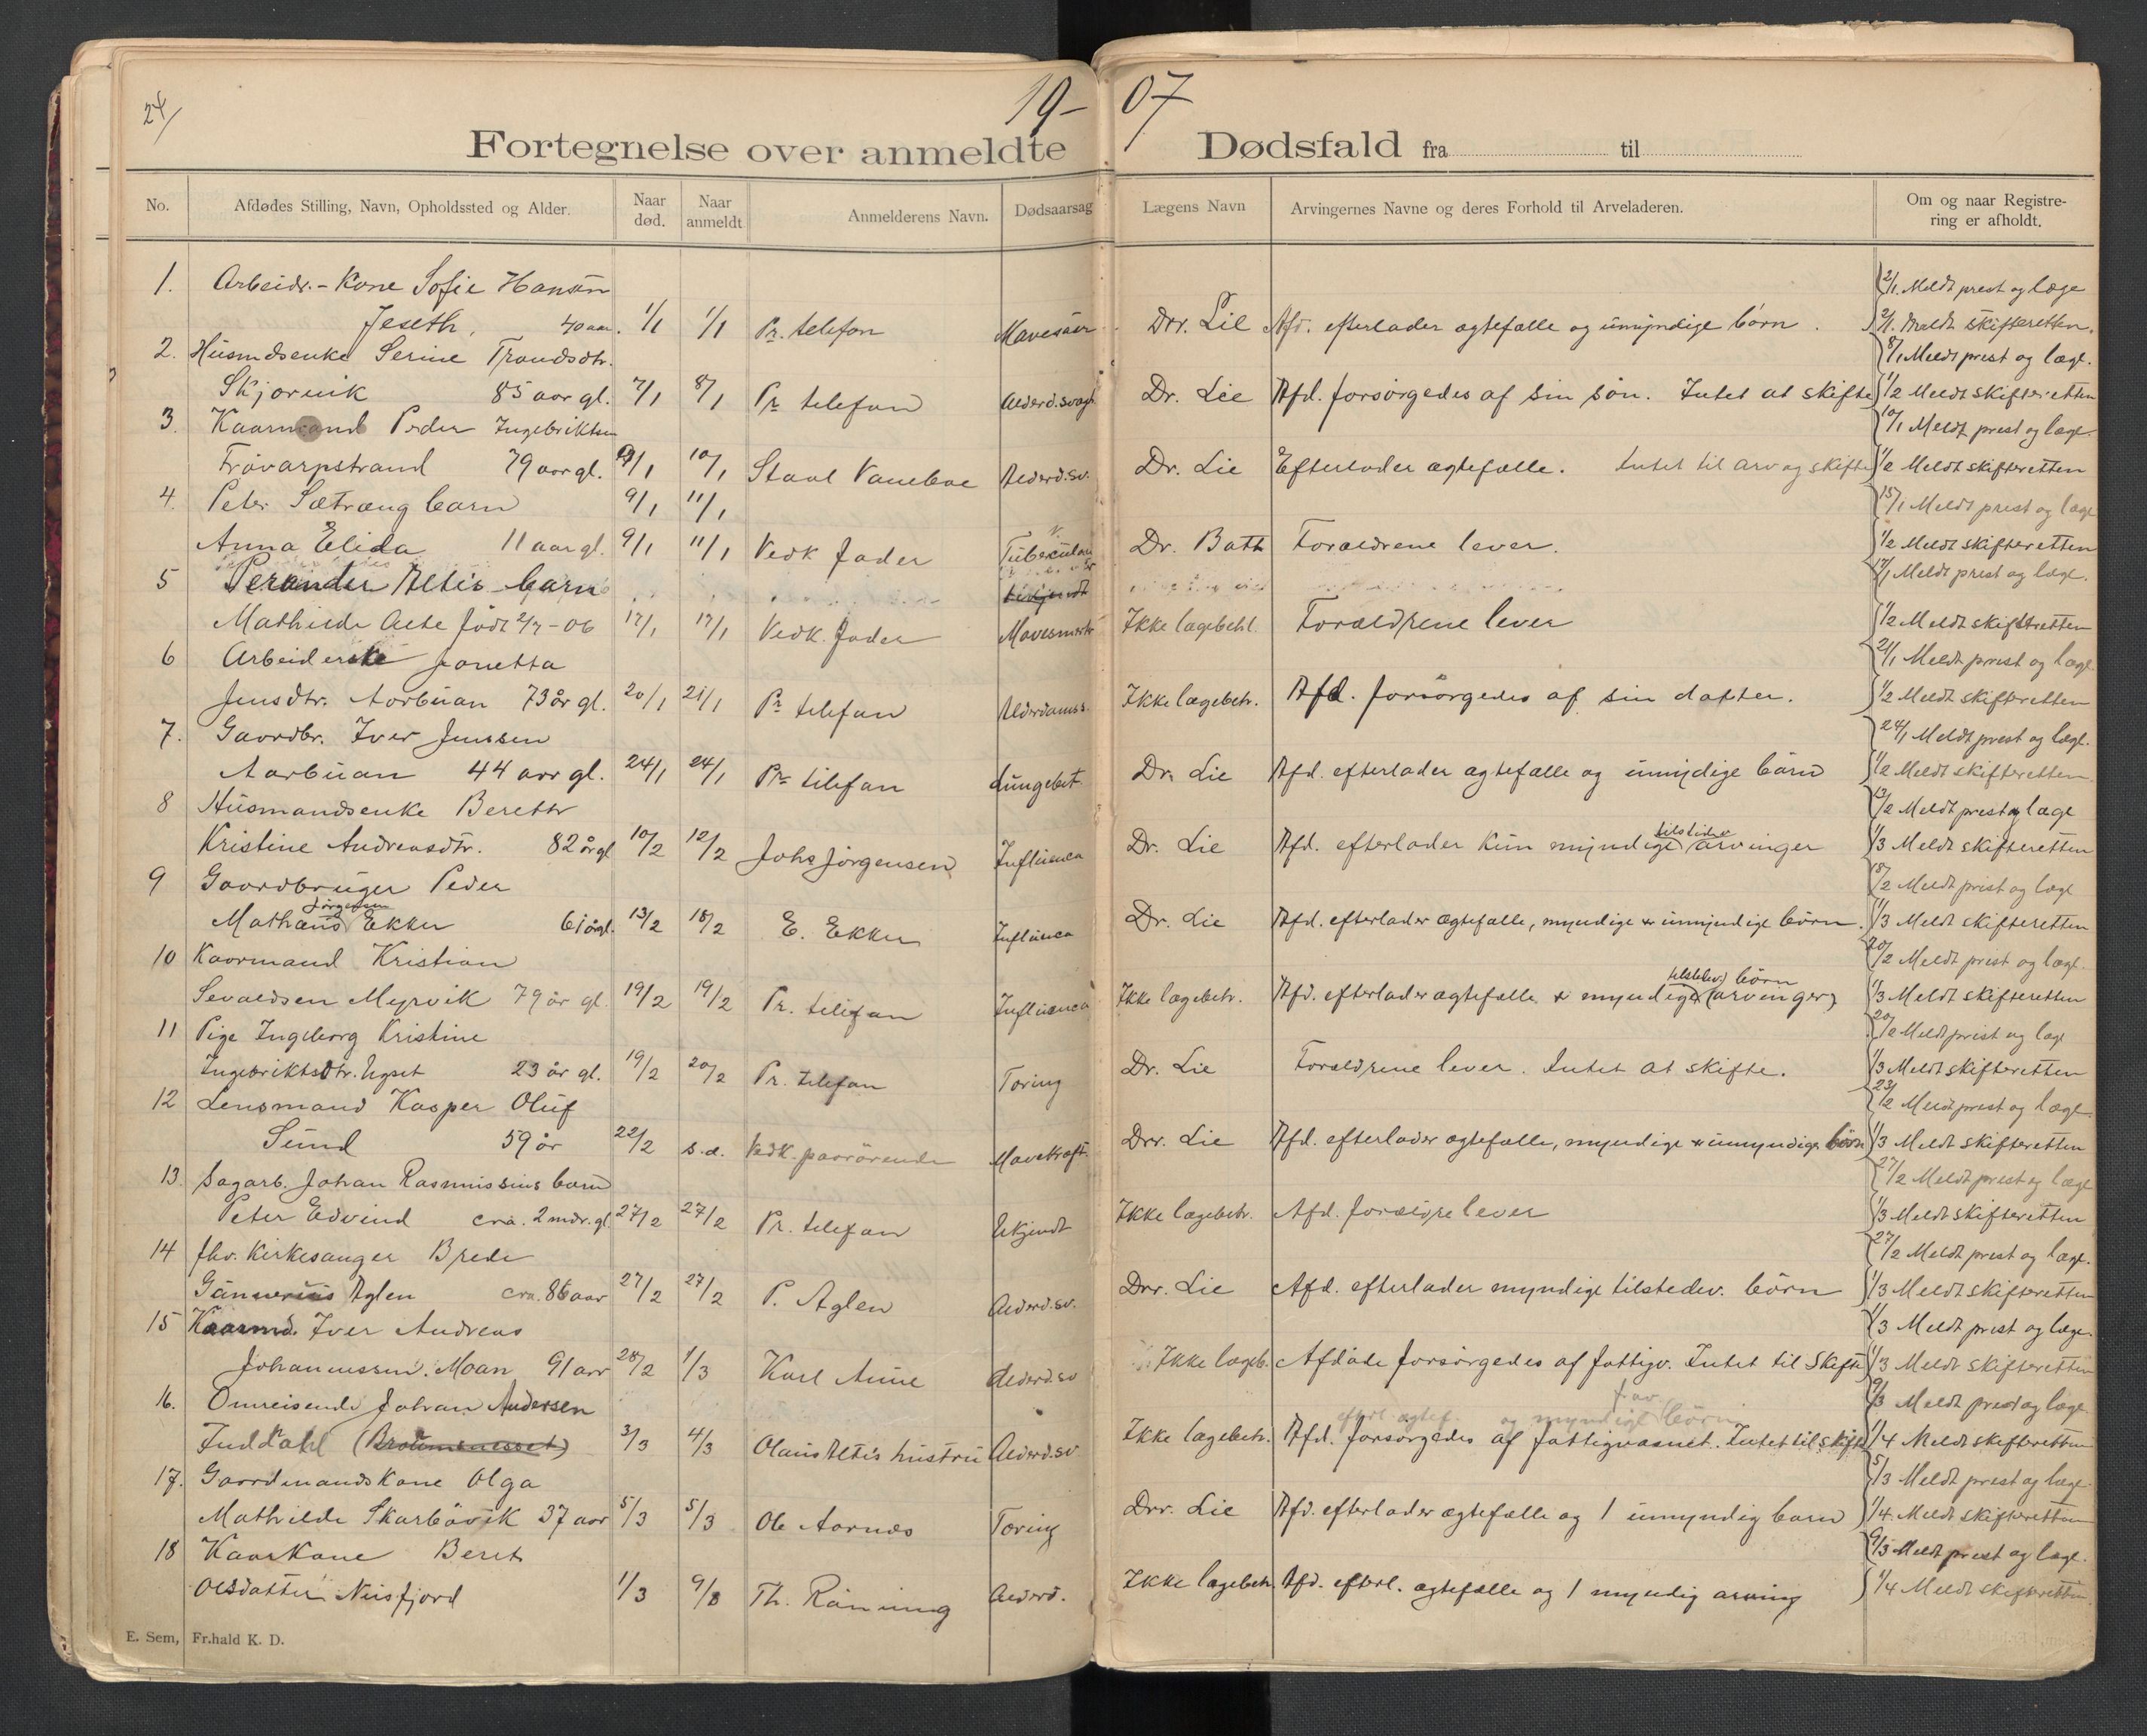 24/
19-07
Fortegnelse over anmeldte Dødsfald fra til
No. Afdødes Stilling, Navn, Opholdssted og Alder. Naar død. Naar anmeldt Anmelderens Navn. Dødsaarsag Lægens Navn Arvingernes Navne og deres Forhold til Arveladeren. Om og naar Registrering er afholdt.
1. Arbeidr.-Kone Sofie Hansen 2/1. Meldt prest og læge
Jeseth, 40 aar. 1/1 1/1 Pr. telefon Mavesaar Drr. Lie Afd. efterlader ægtefælle og umyndige børn. 2/1. Meldt skifteretten.
2. Husmdsenke Serine Trondsdtr. 8/1 Meldt prest og læge.
Skjørvik 85 aar gl. 7/1 8/1 Pr telefon Alderd.svagh. Dr. Lie Afd. forsørgedes af sin søn. Intet at skifte 1/2 Meldt skifteretten
3. Kaarmand Peder Ingebriktsen 10/1 Meldt prest og læge.
Frøvarpstrand 79 aar gl. /1 10/1 Staal Vanebo Alderd.sv. Dr. Lie Efterlader ægtefælle. Intet til arv og skifte 1/2 Meldt skifteretten
4. Peter Sætrang barn 9/1 11/1 15/1 Meldt prest og læge
Anna Elida 11 aar gl. 9/1 11/1 Vedk fader Tuberculose Dr. Bath Forældrene lever. 1/2 Meldt skifteretten
5 Perander Altis barn 17/1 Meldt prest og læge.
Mathilde Aete født 2/7-06 17/1 17/1 Vedk. fader Mavesmerte Ikke lægebehl. Forældrene lever 1/2 Meldt skifteretten
6 Arbeiderske Jonetta 21/1 Meldt prest og læge.
Jensdtr. Aarbuan 73 år gl. 20/1 21/1 Pr telefon Alderdomss. Ikke lægebeh. Afd. forsørgedes af sin datter. 1/2 Meldt skifteretten
7. Gaardbr. Iver Jenssen 24/1 Meldt prest og lægl.
Aarbuan 44 aar gl. 24/1 24/1 Pr telefon Lungebet. Dr. Lie Afd. efterlader ægtefælle og umyndige børn 1/2 Meldt skifteretten
8 Husmandsenke Berette 13/2 Meldt prest og læge
Kristine Andreasdtr. 82 år gl 10/2 12/2 Johs Jørgensen Influenca Dr. Lie Afd. efterlader kun myndige tilstedev arvinger 1/3 Meldt skifteretten
9 Gaardbruger Peder 18/2 Meldt prest og læge
Mathans Jørgensen Ekker 61 år gl. 13/2 18/2 E. Ekker Influenca Dr. Lie Afd. efterlader ægtefælle, myndige & umyndige børn. 1/3 Meldt skifteretten
10 Kaarmand Kristian 20/2 Meldt prest og lægl.
Sevaldsen Myrvik 79 år gl. 19/2 19/2 Pr. telefon Influenca Ikke lægebeh. Afd. efterlader ægtefælle & myndige tilstedev børn (arvinger) 1/3 Meldt skifteretten
11 Pige Ingeborg Kristine 20/2 Meldt prest og læge
Ingebriktsdtr. Ugset 23 år gl. 19/2 20/2 Pr. telefon Tæring Dr. Lie Forældrene lever. Intet at skifte. 1/3 Meldt skifteretten
12 Lensmand Kasper Oluf 23/2 Meldt prest og lægl.
Sund 59 år 22/2 s.d. Vedk. paarørende Mavekræft Drr. Lie Afd. efterlader ægtefælle, myndige & umyndige børn 1/3 Meldt skifteretten
13. Sagarb. Johan Rasmussens barn 27/2 Meldt prest og læge
Peter Edvind cra. 2 mdr. gl. 27/2 27/2 Pr. telefon Ukjendt Ikke lægebeh. Afd. forældre lever 1/3 Meldt skifteretten
14 fhv. Kirkesanger Brede 27/2 Meldt prest og læge.
Gunnerius Aglen cra. 86 aar 27/2 27/2 P. Aglen Alderd.sv. Drr. Lie Afd. efterlader myndige tilstedev. børn 1/3 Meldt skifteretten
15 Kaarmd. Iver Andreas 1/3 Meldt prest og læge.
Johannessen. Moan 91 aar 28/2 1/3 Karl Aune Alderd.sv Ikke lægeb. Afdøde forsørgedes af fattigv. Intet til skifte 1/3 Meldt skifteretten
16. Omreisende Johan Andersen 9/3 Meldt prest og læge.
efterl. ægtef. og myndige børn
Inddahl 3/3 4/3 Olaus Altis hustru Alderd.sv. Ikke lægebeh. Afd. forsørgedes af fattigvæsnet. Intet til skifte 1/4 Meldt skifteretten
17. Gaardmandskone Olga 5/3 Meldt prest og læge.
Mathilde Skarbøvik 37 aar 5/3 5/3 Ole Aarnes Tæring Drr. Lie Afd. efterlader ægtefælle og 1 umyndig barn 1/4. Meldt skifteretten
18 Kaarkone Beret 9/3 Meldt prest og læge.
Olsdatter Neisfjord 1/3 9/3 Th. Rønning Alderd. Ikke lægebeh. Afd. efterl. ægtefælle og 1 myndig arving 1/4 Meldt skifteretten
E. Sem, Fr.hald K. D.